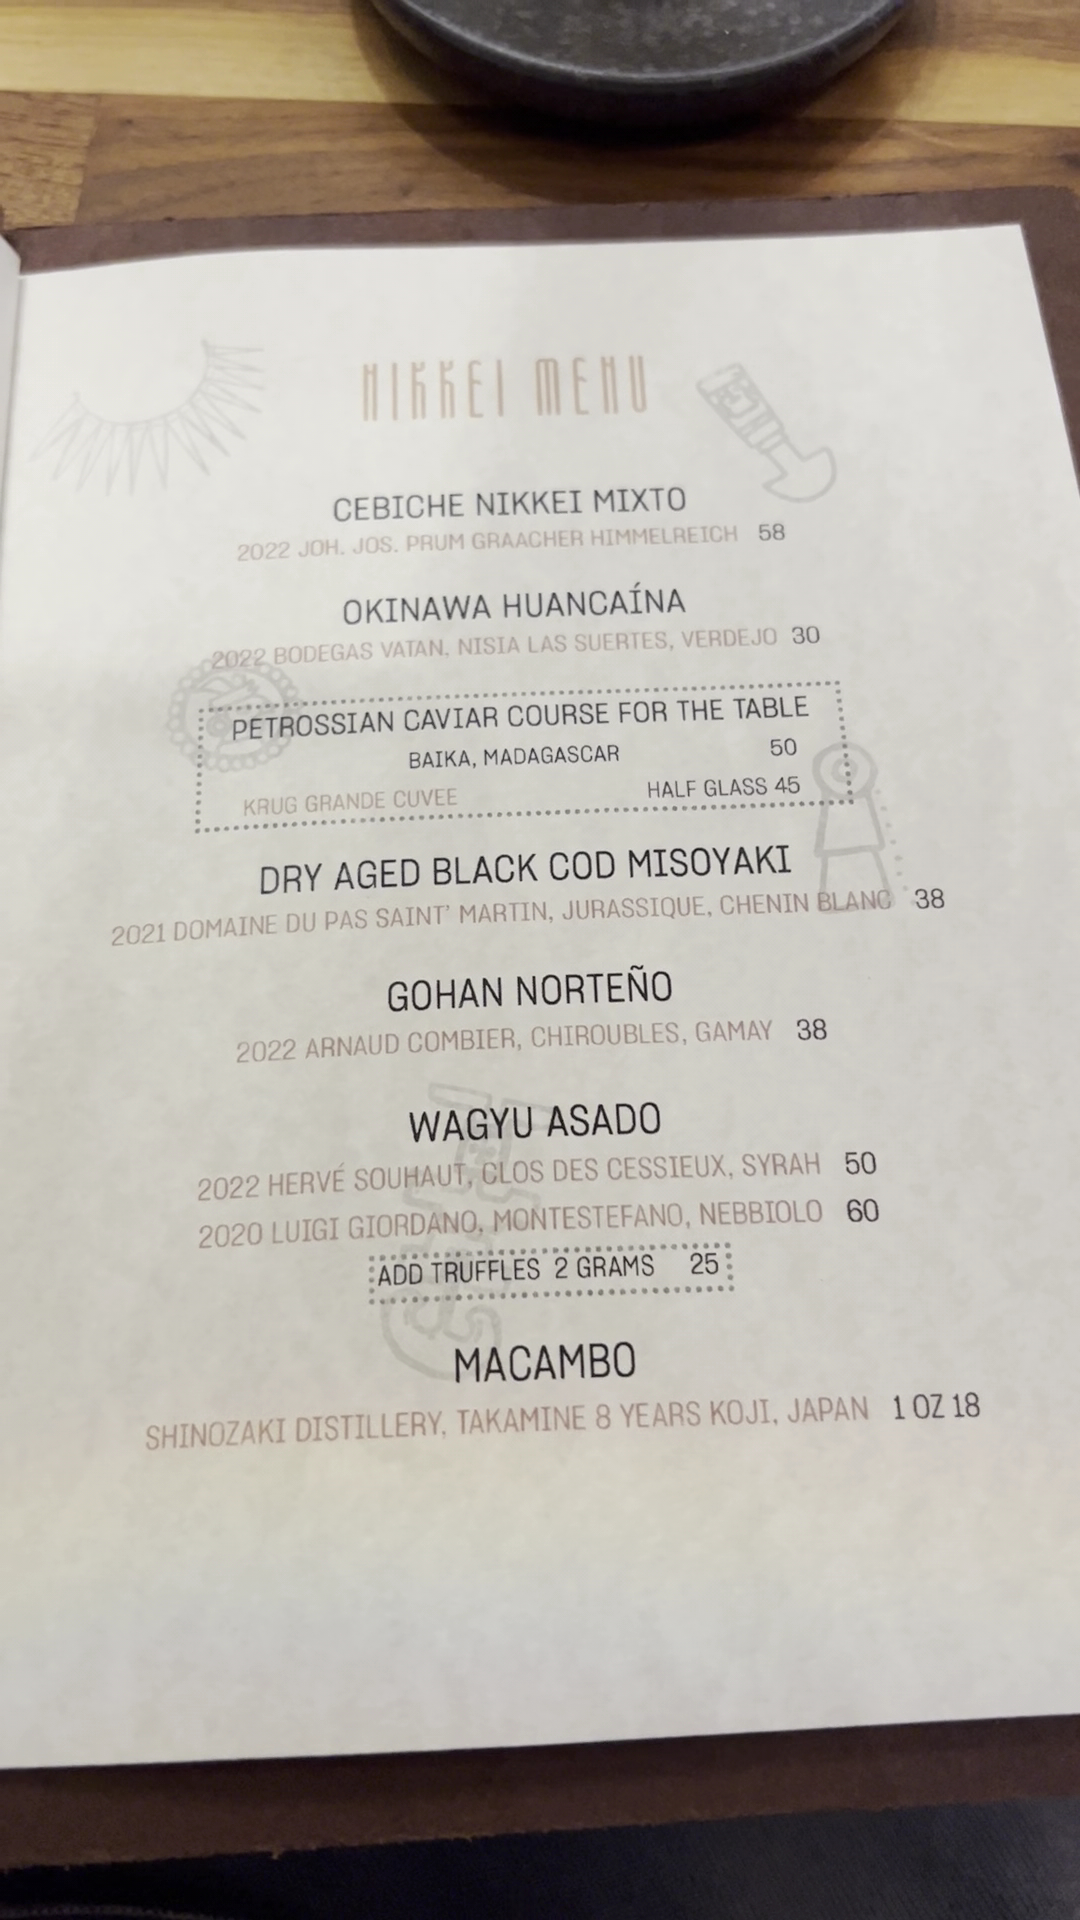 NIKKEI MENU
CEBICHE NIKKEI MIXTO
2022 JOH. JOS. PRUM GRAACHER HIMMELREICH 58
OKINAWA HUANCAÍNA
2022 BODEGAS VATAN, NISIA LAS SUERTES, VERDEJO 30
PETROSSIAN CAVIAR COURSE FOR THE TABLE
BAIKA, MADAGASCAR 50
KRUG GRANDE CUVEE HALF GLASS 45
DRY AGED BLACK COD MISOYAKI
2021 DOMAINE DU PAS SAINT' MARTIN, JURASSIQUE, CHENIN BLANC 38
GOHAN NORTEÑO
2022 ARNAUD COMBIER, CHIROUBLES, GAMAY 38
WAGYU ASADO
2022 HERVÉ SOUHAUT, CLOS DES CESSIEUX, SYRAH 50
2020 LUIGI GIORDANO, MONTESTEFANO, NEBBIOLO 60
ADD TRUFFLES 2 GRAMS 25
MACAMBO
SHINOZAKI DISTILLERY, TAKAMINE 8 YEARS KOJI, JAPAN 1 OZ 18